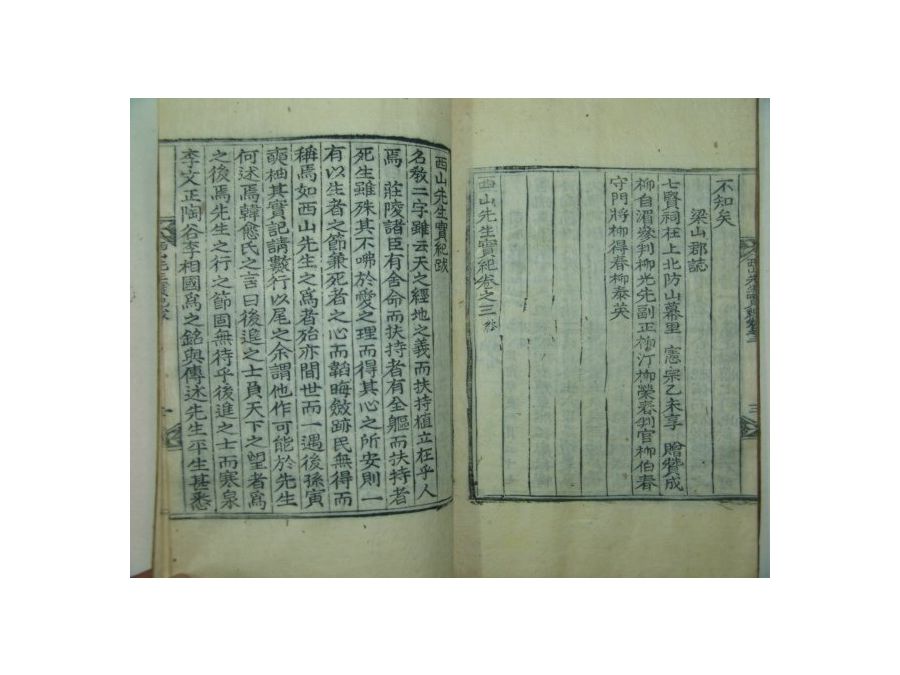 不知矣
梁山郡誌
七賢祠在上北防山幕里 憲宗乙未享 贈贊成
柳自湄參判柳光先副正柳汀柳榮春判官柳伯春
守門將柳得春柳泰英
西山先生實紀卷之三終
西山先生實紀跋
名敎二字雖云天之經地之義而扶持植立在乎人
焉 莊陵諸臣有舍命而扶持者有全軀而扶持者
死生雖殊其不咈於愛之理而得其心之所安則一
有以生者之節兼死者之心而韜晦斂跡民無得而
稱焉如西山先生之爲者殆亦間世而一遇後孫寅
奭袖其實記請數行以尾之余謂他作可能於先生
何述焉韓愈氏之言曰後進之士負天下之望者爲
之後焉先生之行之節固無待乎後進之士而寒泉
李文正陶谷李相國爲之銘與傳述先生平生甚悉